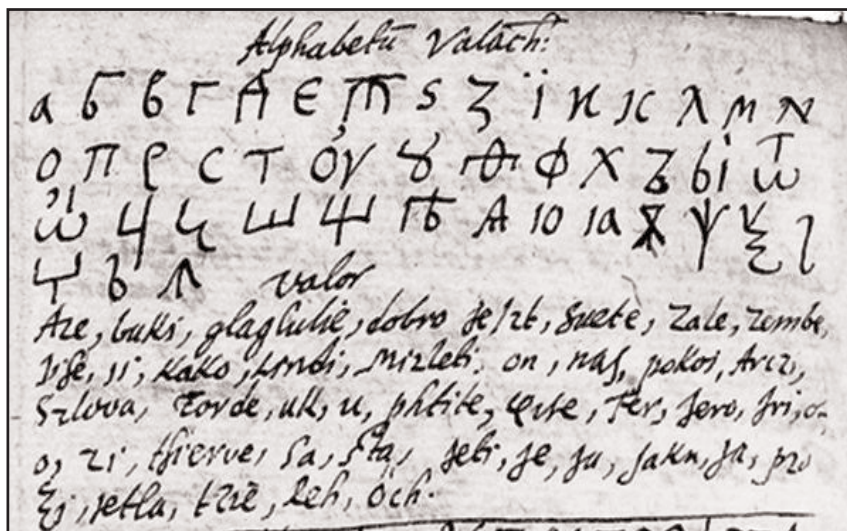 Alphabetū Valach:
а б в г д є ж ѕ з ї и к л м н
о п р с т ѹ ꙋ ѳ ф х ъ ы ѿ
ѡ ч ц ш щ ѣ ѧ ю ꙗ ѫ ѱ ѯ
ь valor
Aze, buki, glaglulie, dobro jeszt, suete, zale, zembe,
ise, ii, kako, Mizleti, on, nas, pokoi,
szlova, torde, uk, u, phtite, Ter, jero,
o, zi, thierve, sa, sta, jeti, je, ju, jaku, ja,
jetla, tzie, leh, öch.